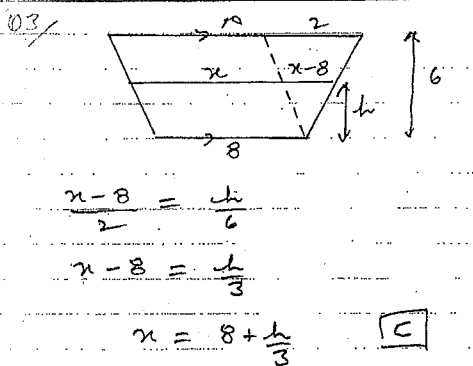 03/
2
x
x-8
6
h
8
x - 8 / 2 = h / 6
x - 8 = h / 3
x = 8 + h / 3
C